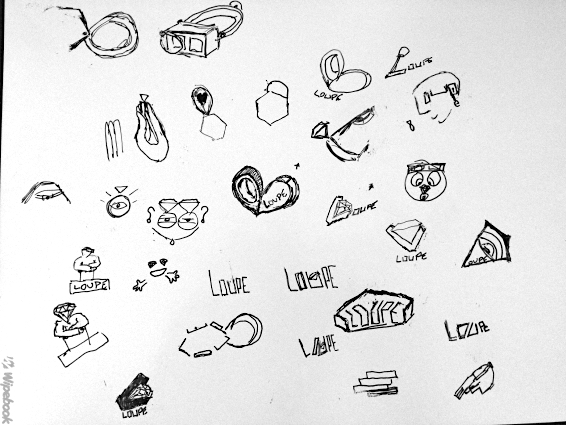 LOUPE
LOUPE
LOUPE
LOUPE
LOUPE
LOUPE
LOUPE
LOUPE
LOUPE
LOUPE
LOUPE
LOUPE
LOUPE
Wipebook